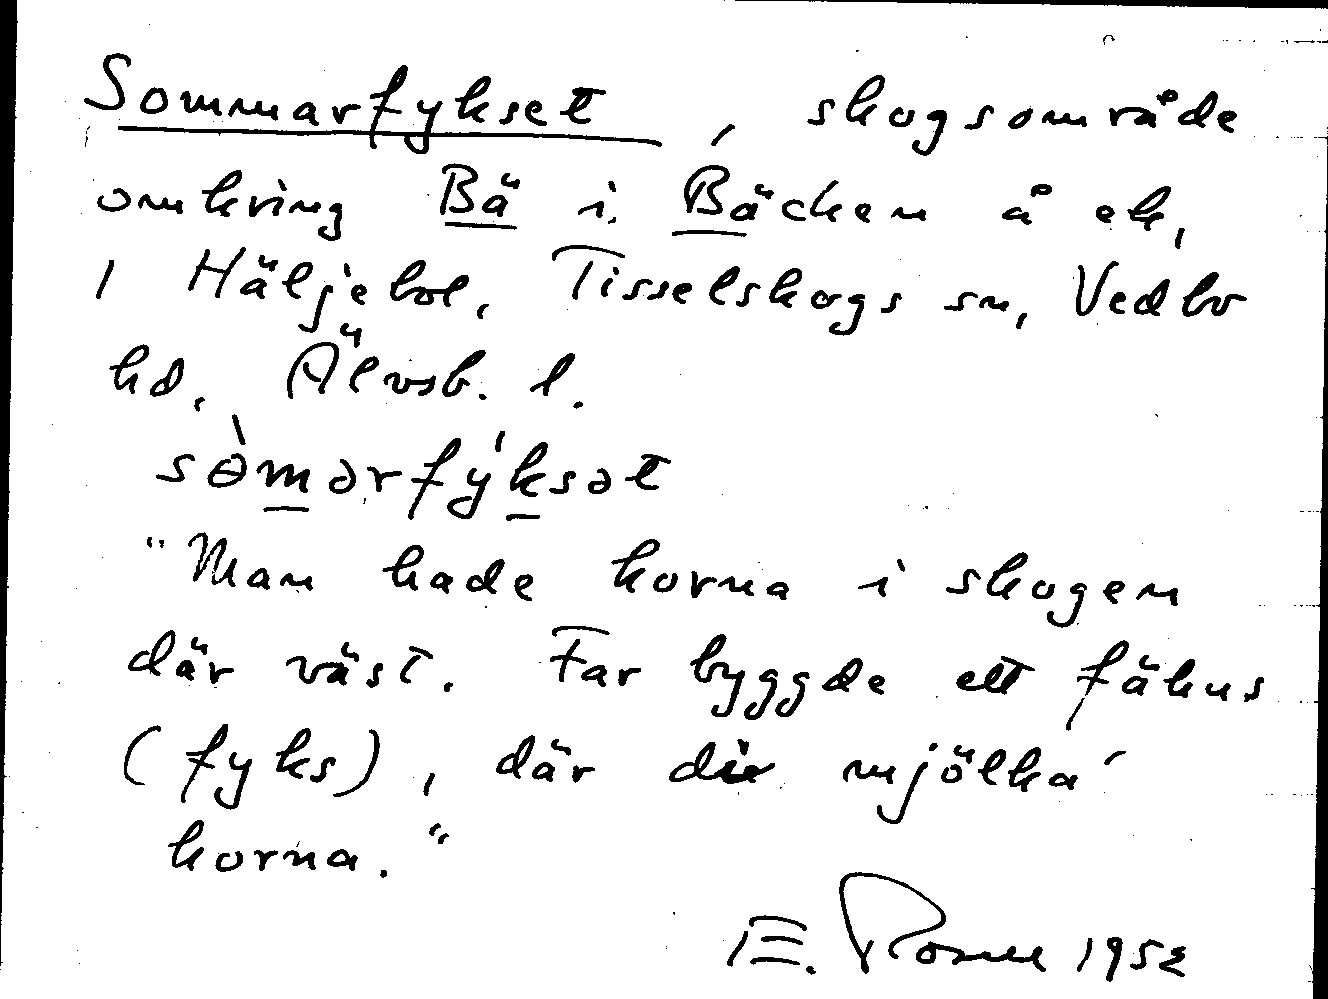 Sommarfykset, skogsområde
omkring Bä i Bäcken å ek,
1 Häljebol, Tisselskogs sn, Vedbo
hd. Älvsb. l.
sɵ̀marfy̍ksət
"Man hade korna i skogen
där väst. Far byggde ett fähus
(fyks), där die mjölka'
korna."
E. Rosell 1952